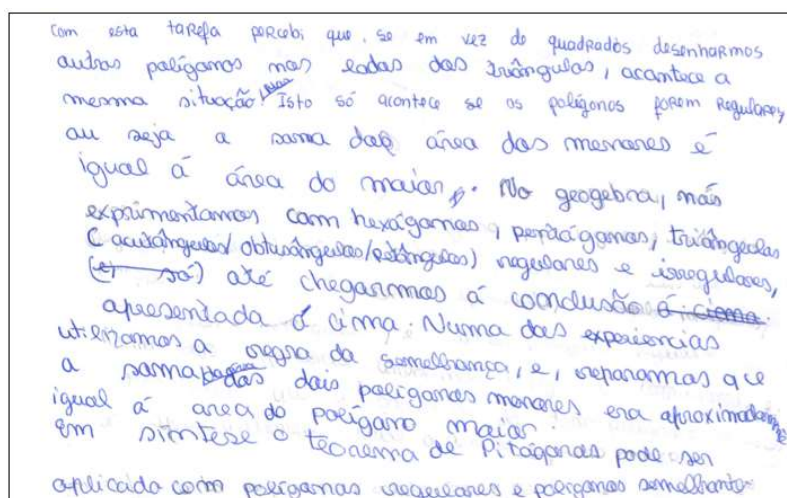 Com esta tarefa percebi que, se em vez de quadrados desenharmos
outros polígonos nos lados dos triângulos, acontece a
mesma situação. Isto só acontece se os polígonos forem regulares,
ou seja a soma das área dos menores é
igual á área do maior. No geogebra, nós
exprimentamos com hexágonos, pentágonos, triângulos
(acutângulos/obtusângulos/retângulos) regulares e irregulares,
(e, só) até chegarmos á conclusão á cima
apresentada á cima. Numa das experiencias
utilizamos a regra da semelhança, e, reparamos que
a soma dos dois polígonos menores era aproximadamente
igual á area do polígono maior.
Em síntese o teorema de Pitágoras pode ser
aplicado com polígonos regulares e polígonos semelhante